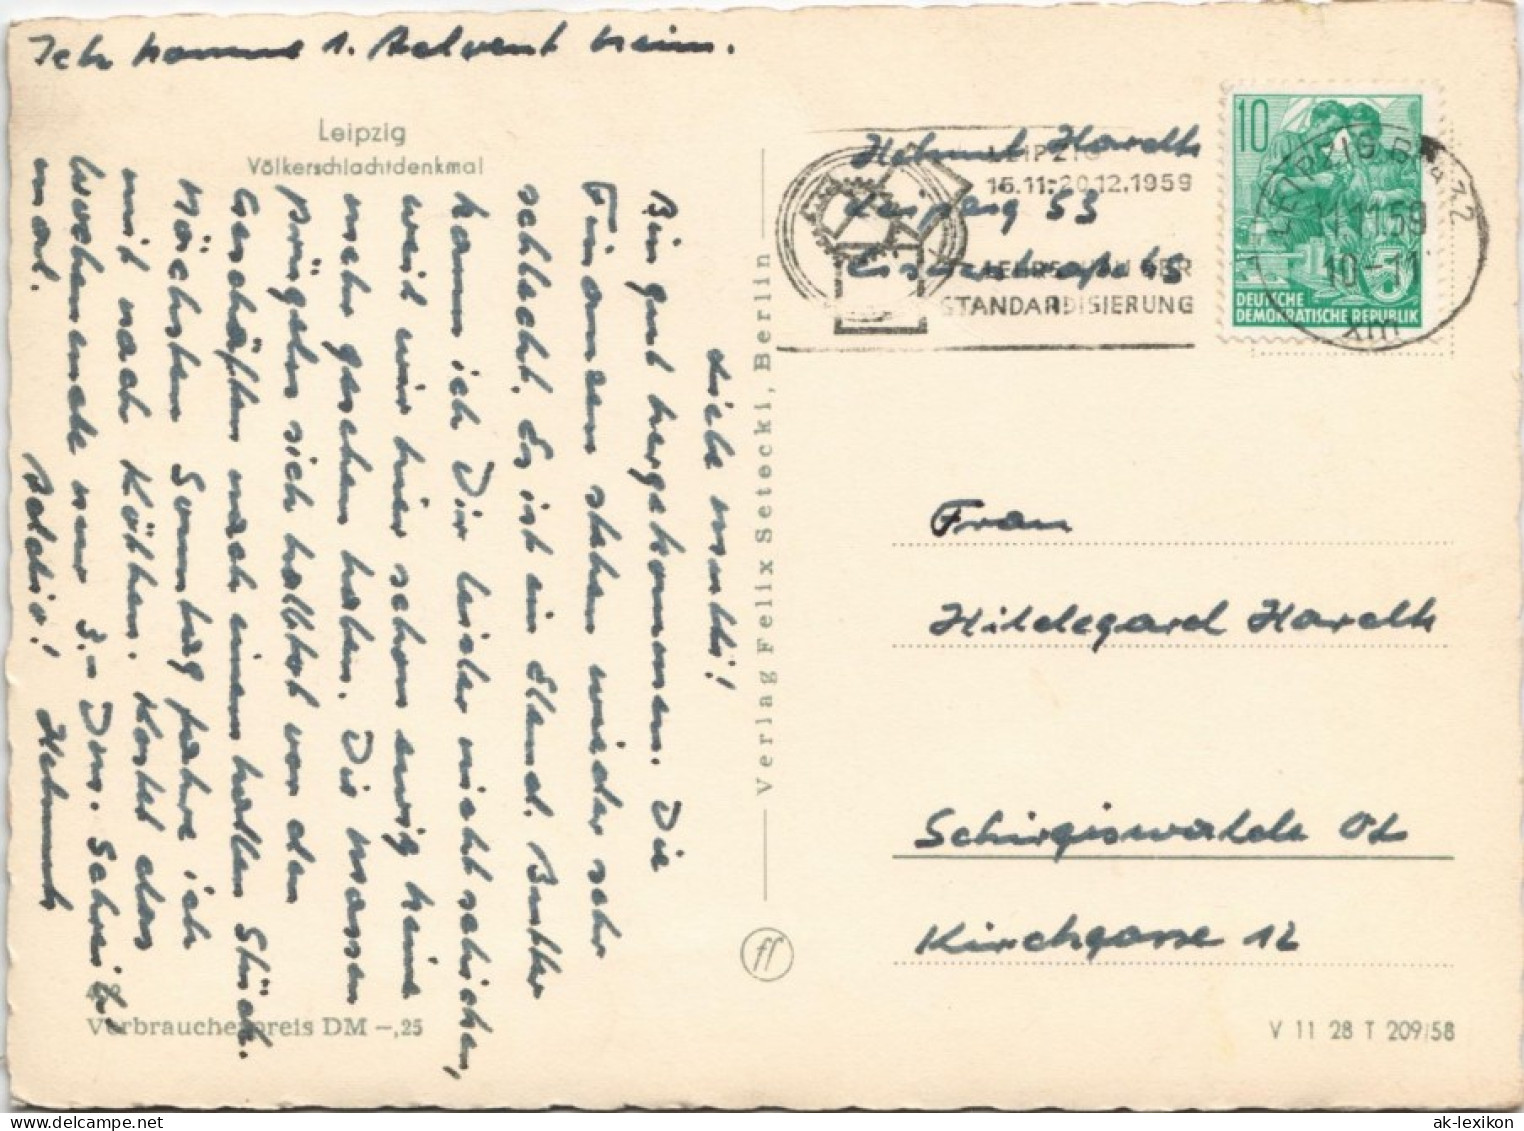 Ich komme 1. Advent heim.
Leipzig
Völkerschlachtdenkmal
Liebe Mutti!
Bin gut hergekommen. Die
Finanzen stehen wieder sehr
schlecht. Es ist ein Elend. Butter
kann ich Dir leider nicht schicken,
weil wir hier schon ewig keine
mehr gesehen haben. Die Massen
prügeln sich halbtot vor den
Geschäften nach einem halben Stück.
Nächsten Sonntag fahre ich
mit nach Köthen. Kostet das
Wochenende nur 3,- Dm. Schreib
mal.
Addio! Helmut
Verbraucherpreis DM -,25
Verlag Felix Setecki, Berlin
ff
Helmut Hardth
Leipzig S3
45
LEIPZIG
16.11.-20.12.1959
STANDARDISIERUNG
10
DEUTSCHE
DEMOKRATISCHE REPUBLIK
LEIPZIG
11.59
10-11
Frau
Hildegard Hardth
Schirgiswalde OL
Kirchgasse 12
V 11 28 T 209/58
ak-lexikon